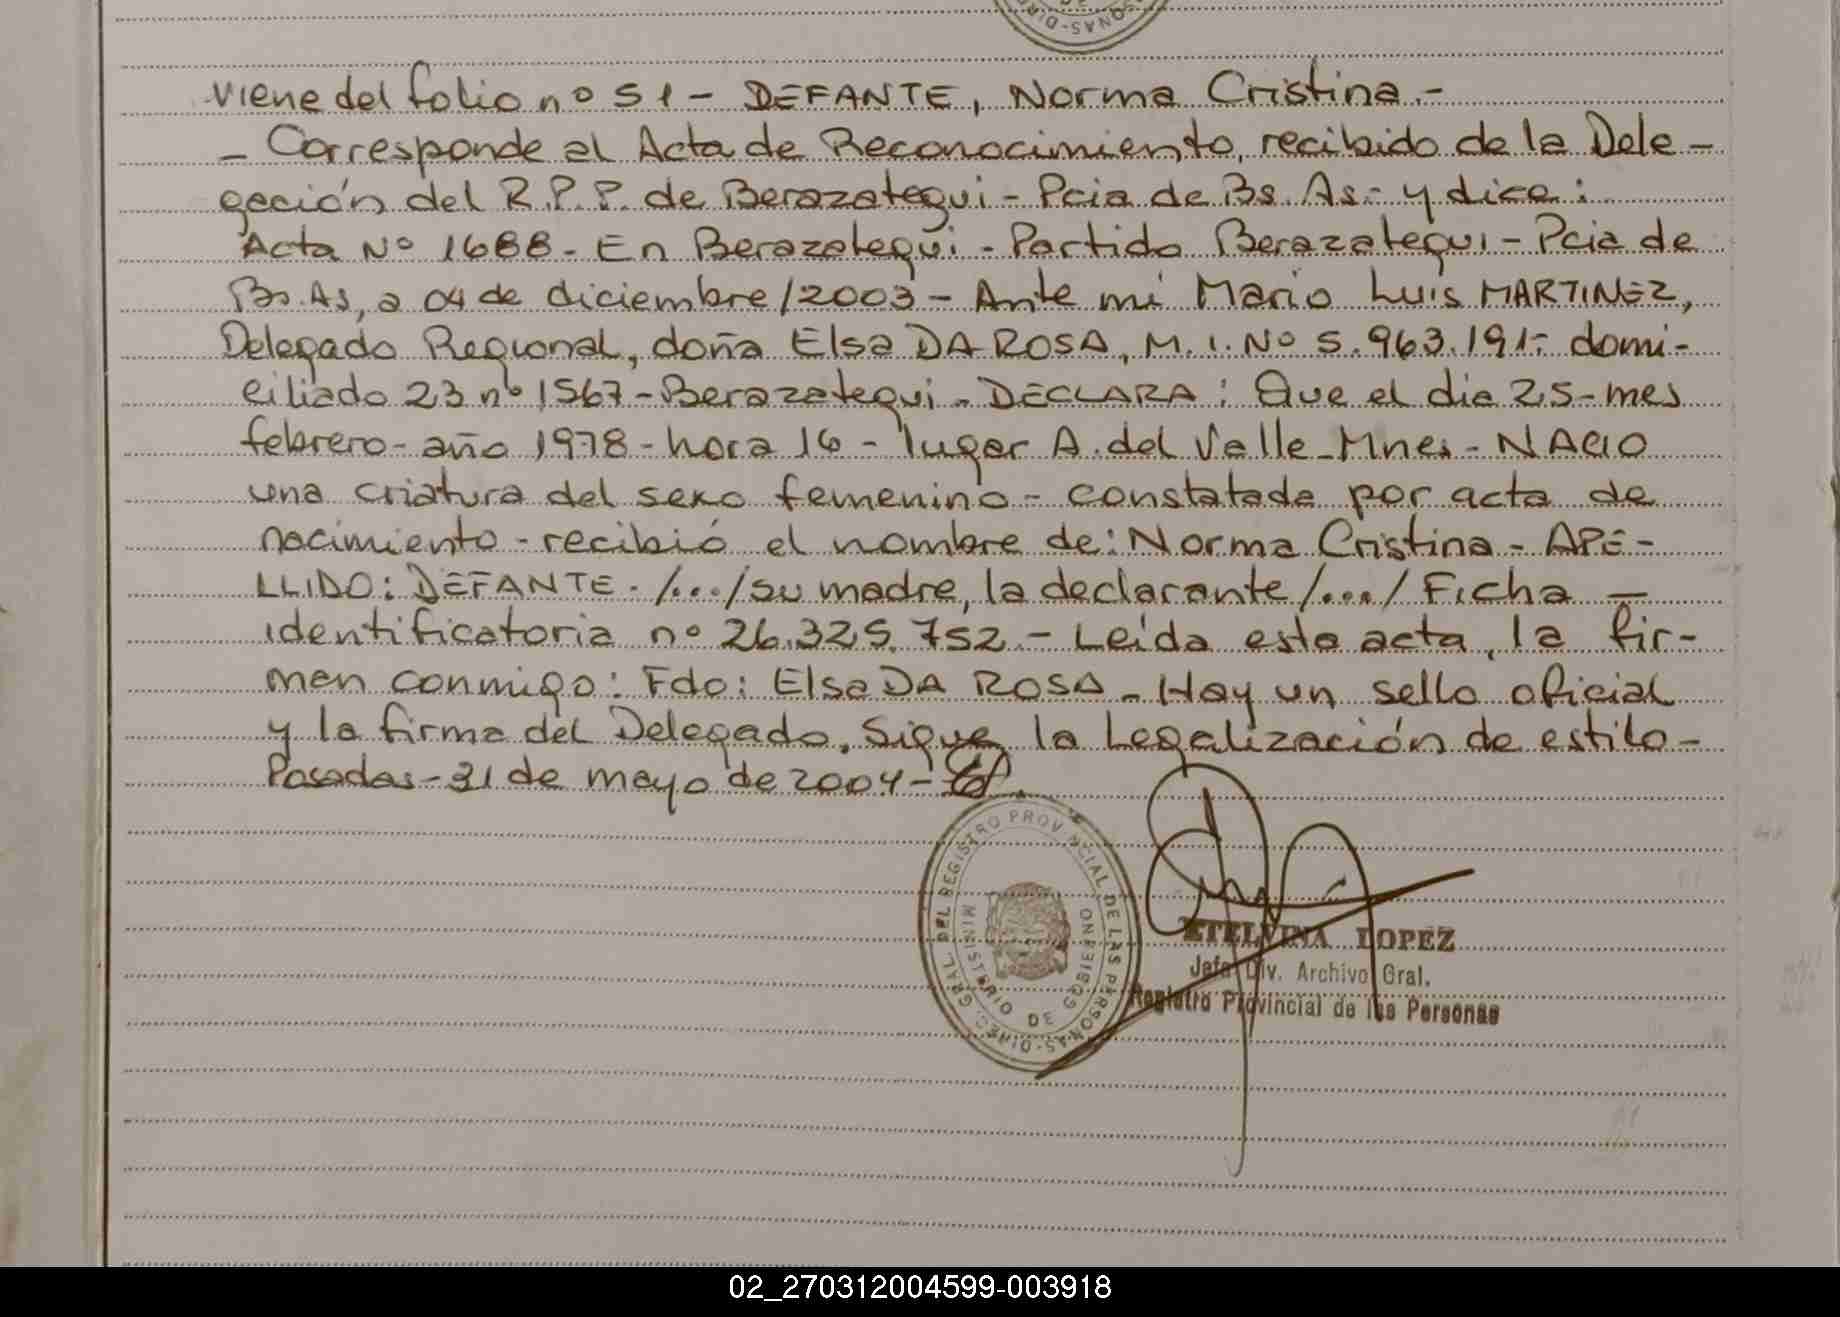 viene del folio nº 51 - DEFANTE, Norma Cristina.-
- Corresponde al Acta de Reconocimiento, recibido de la Dele-
gación del R.P.P. de Berazategui - Pcia de Bs. As.- y dice:
Acta Nº 1688 - En Berazategui - Partido Berazategui - Pcia de
Bs.As, a 04 de diciembre/2003 - Ante mí Mario Luis MARTINEZ,
Delegado Regional, doña Elsa DA ROSA, M.I. Nº 5.963.191- domi-
ciliado 23 nº 1567 - Berazategui - DECLARA: Que el dia 25 - mes
febrero - año 1978 - hora 16 - lugar A. del Valle - Mnes - NACIO
una criatura del sexo femenino - constatada por acta de
nacimiento - recibió el nombre de: Norma Cristina - APE-
LLIDO: DEFANTE - /.../ su madre, la declarante /.../ Ficha -
identificatoria nº 26.325.752 - Leída esta acta, la fir-
man conmigo: Fdo: Elsa DA ROSA - Hay un sello oficial
y la firma del Delegado. Sigue la Legalización de estilo -
Posadas - 31 de mayo de 2004 -
DIREC. GRAL. DEL REGISTRO PROVINCIAL DE LAS PERSONAS
MINISTERIO DE GOBIERNO
ETELVINA LOPEZ
Jefa Div. Archivo Gral.
Registro Provincial de las Personas
02_270312004599-003918